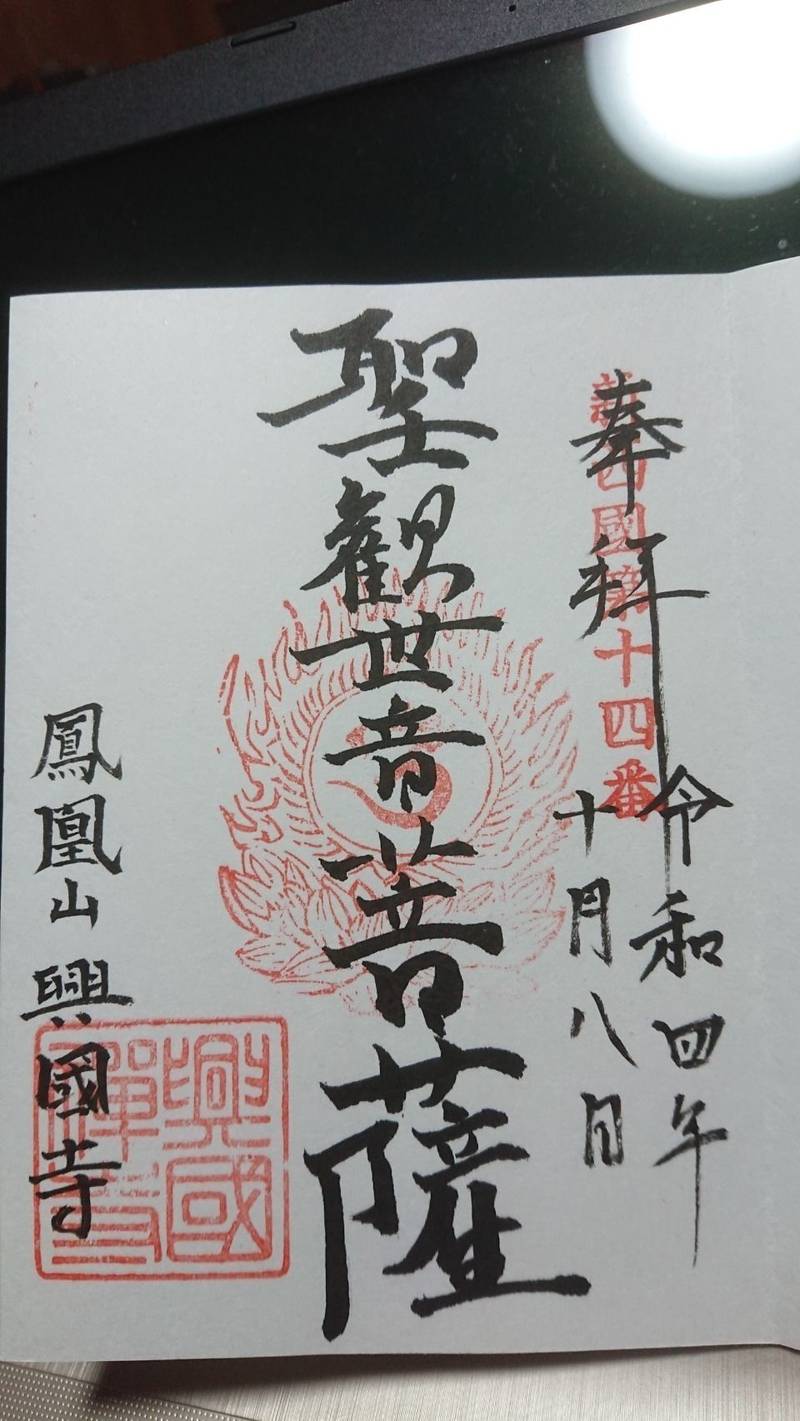 奉拝
西國第十四番
令和四年
十月八日
聖観世音菩薩
鳳凰山興國寺
興國
禪寺